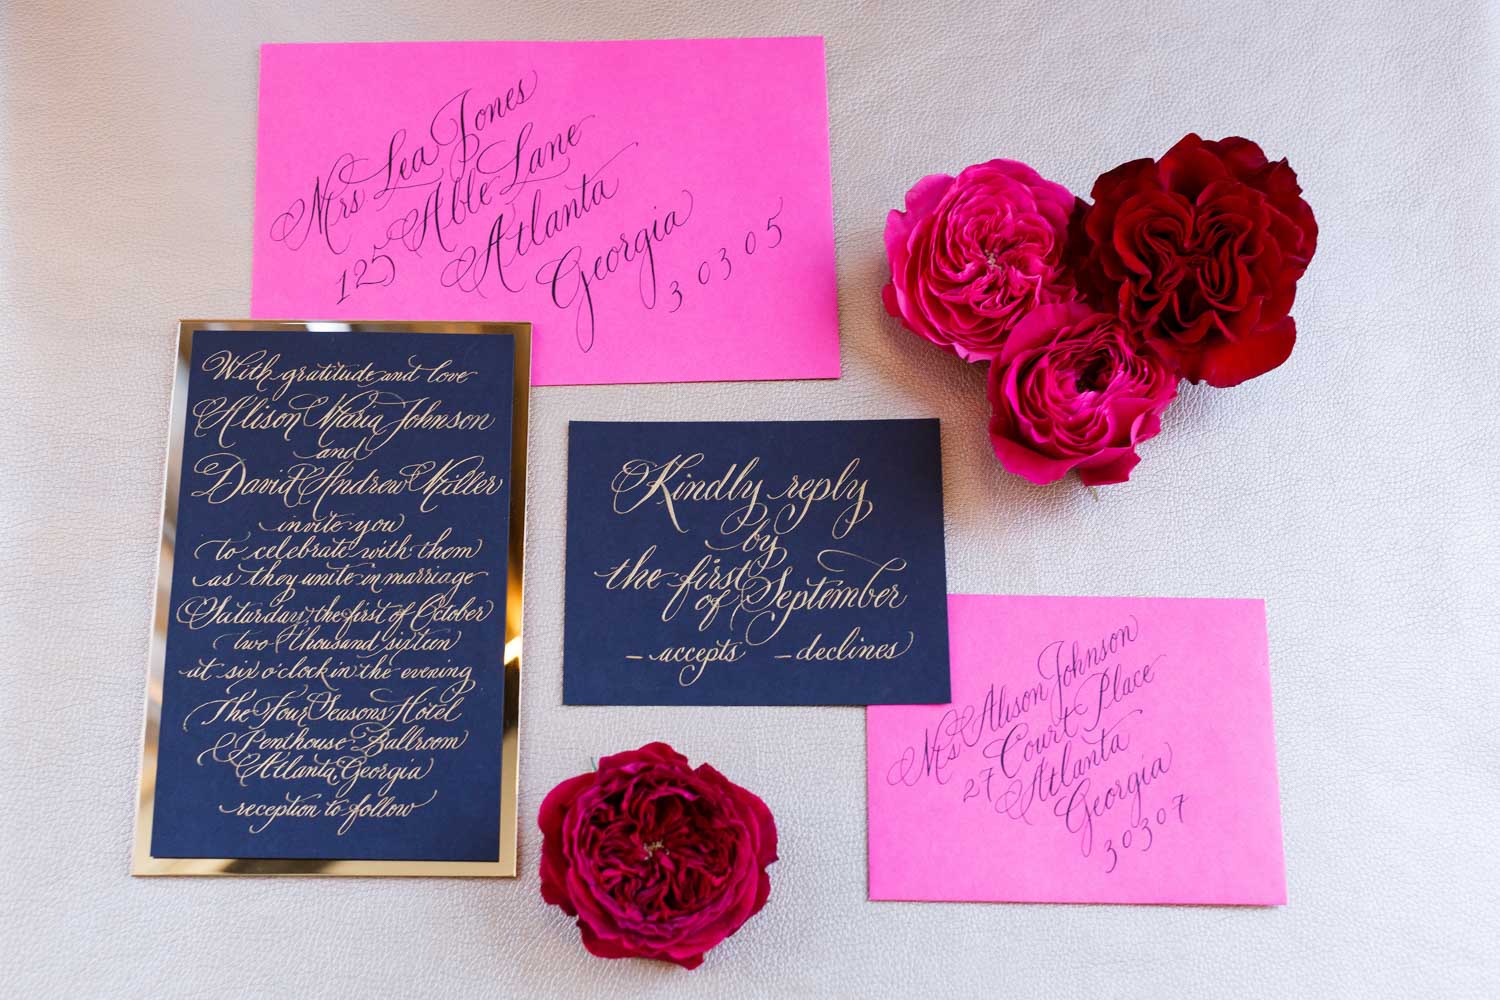 Mrs Lea Jones
125 Able Lane
Atlanta
Georgia
30305
With gratitude and love
Alison Maria Johnson
and
David Andrew Miller
invite you
to celebrate with them
as they unite in marriage
Saturday, the first of October
two thousand sixteen
at six o'clock in the evening
The Four Seasons Hotel
Penthouse Ballroom
Atlanta, Georgia
reception to follow
Kindly reply
by
the first
of September
_ accepts _ declines
Ms Alison Johnson
27 Court Place
Atlanta
Georgia
30307